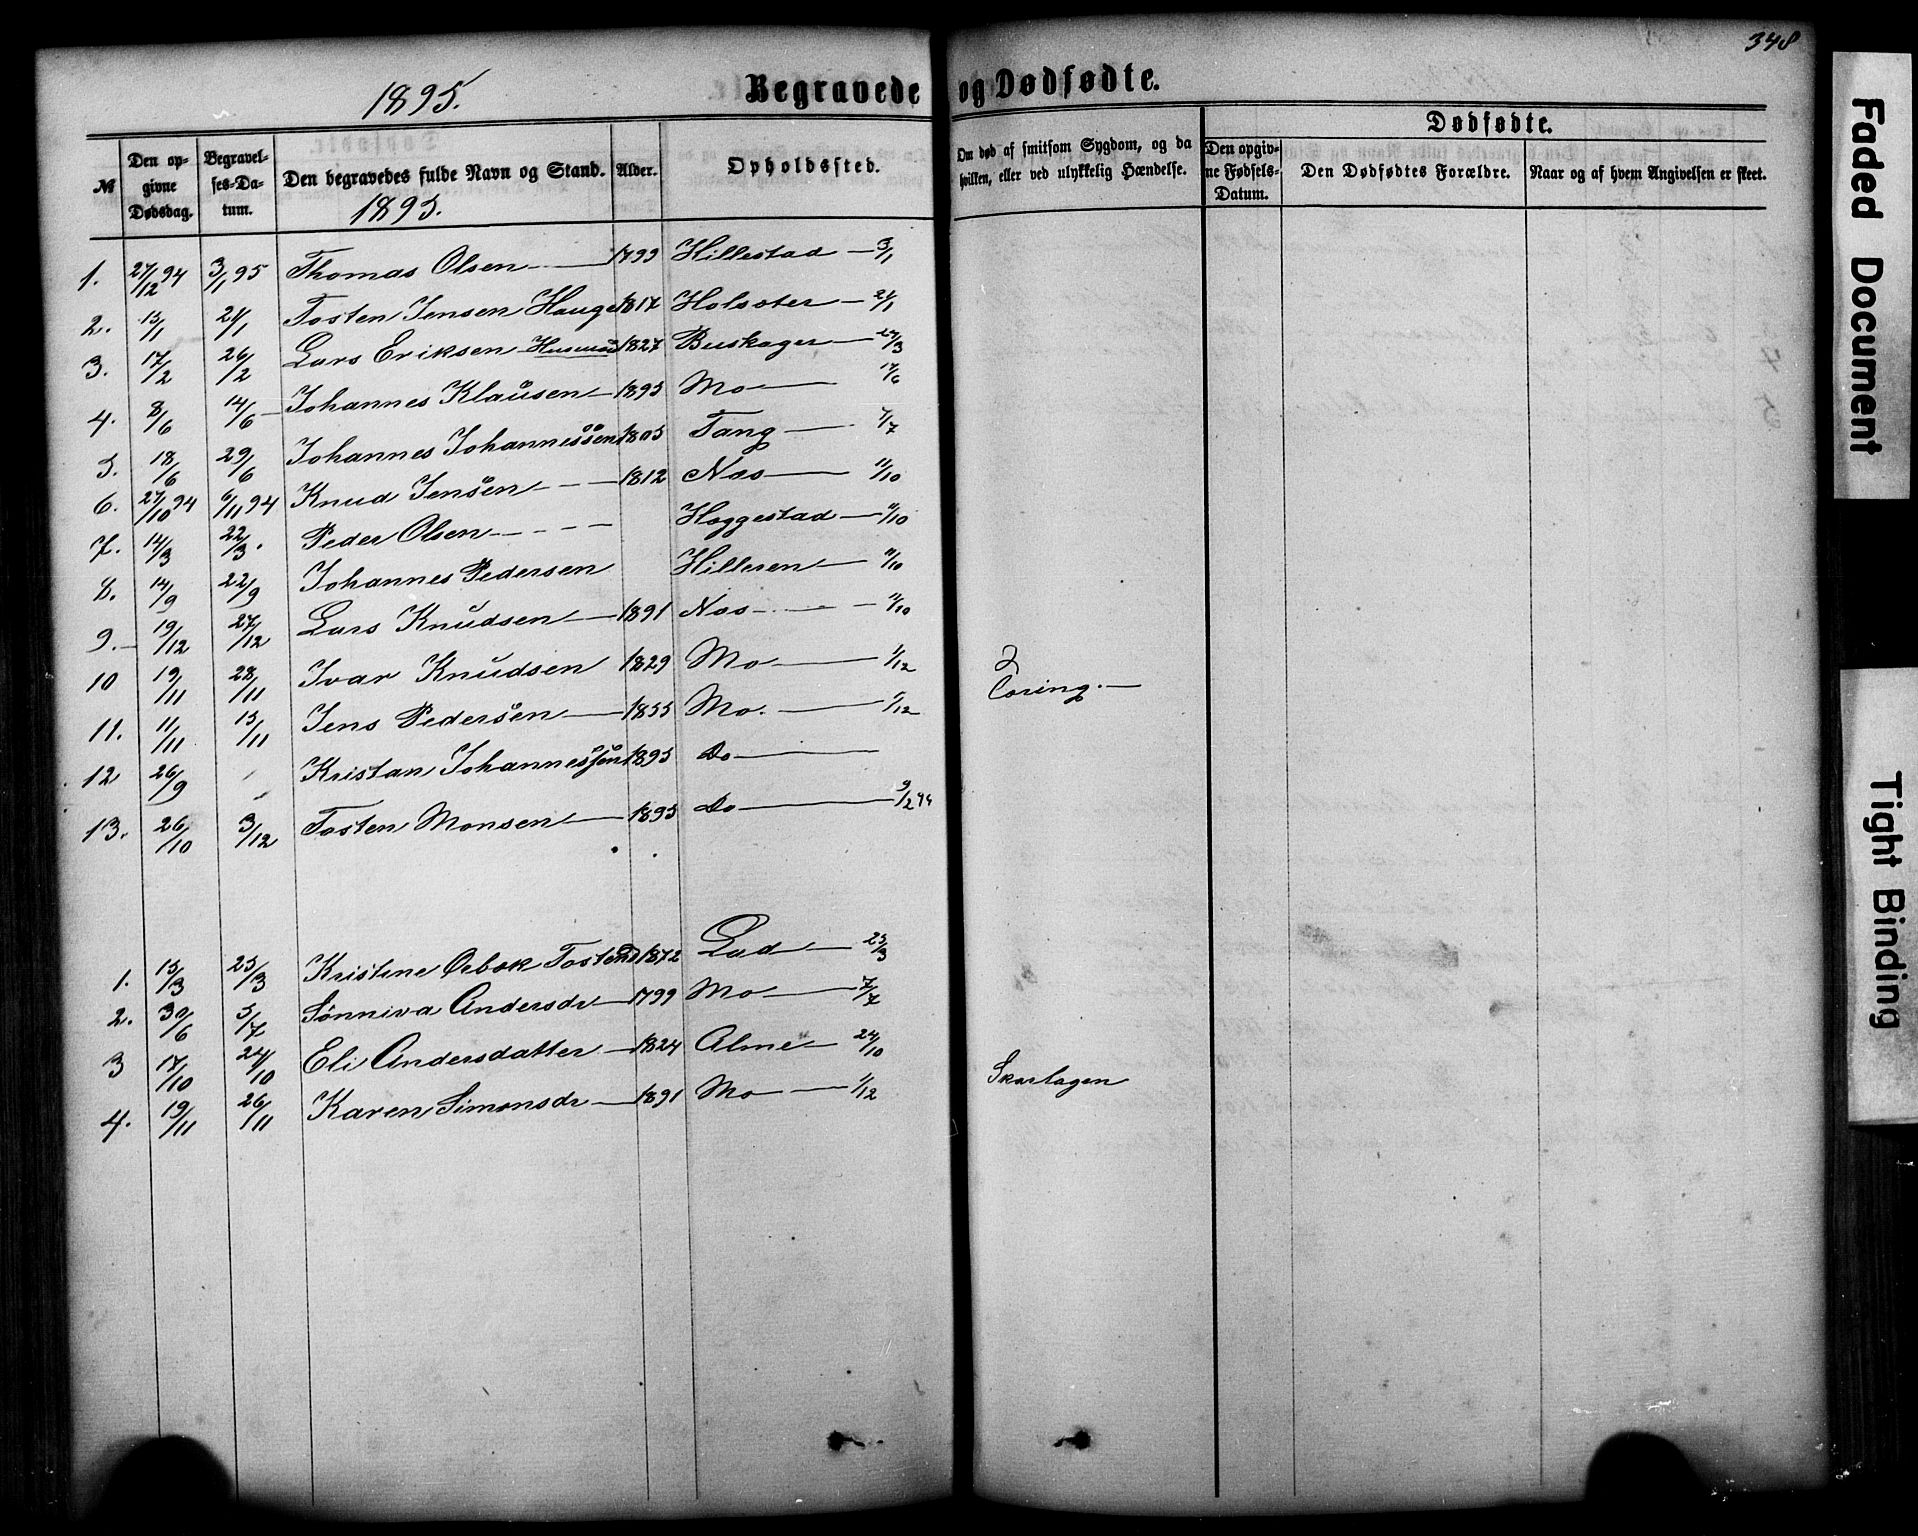 348
1895.
Begravede og Dødfødte.
№
Den opgivne Dødsdag.
Begravelses-Datum.
Den begravedes fulde Navn og Stand.
Alder.
Opholdssted.
Om død af smitsom Sygdom, og da hvilken, eller ved ulykkelig Hændelse.
Dødfødte.
Den opgivne Fødsels-Datum.
Den Dødfødtes Forældre.
Naar og af hvem Angivelsen er skeet.
1895.
1. 27/12 94 3/1 95 Thomas Olsen 1799 Hillestad 3/1
2. 15/1 24/1 Tosten Jensen Hauge 1817 Holsæter 24/1
3. 17/2 26/2 Lars Eriksen Husmd 1827 Buskager 24/3
4. 8/6 14/6 Johannes Klausen 1895 Mo 17/6
5. 18/6 29/6 Johannes Johannessen 1805 Tang 7/7
6. 27/10 94 6/11 94 Knud Jensen 1812 Næs 11/10
7. 14/3 22/3. Peder Olsen Heggestad 11/10
8. 14/9 22/9 Johannes Pedersen Hilleren 11/10
9. 19/12 27/12 Lars Knudsen 1891 Næs 11/10
10 19/11 28/11 Ivar Knudsen 1829 Mo 1/12
11. 11/11 15/11 Jens Pedersen 1855 Mo. 1/12
12 26/9 Kristan Johannessen 1895 Do
13. 26/10 3/12 Tosten Monsen 1895 Do 9/2
1. 15/3 25/3 Kristine Ørbæk 1872 Lad 25/3
2. 30/6 5/7 Sønniva Andersdr 1799 Mo 7/7
3 17/10 24/10 Eli Andersdatter 1824 Alme 24/10
4. 19/11 26/11 Karen Simonsdr 1891 Mo 1/12 Skarlagen
Faded Document
Tight Binding